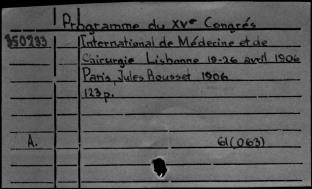 Programme du XVe Congrés
350233 International de Médecine et de
Cairurgie Lisbonne 19-26 avril 1906
Paris, Jules Rousset 1906
123 p.
A. 61(063)